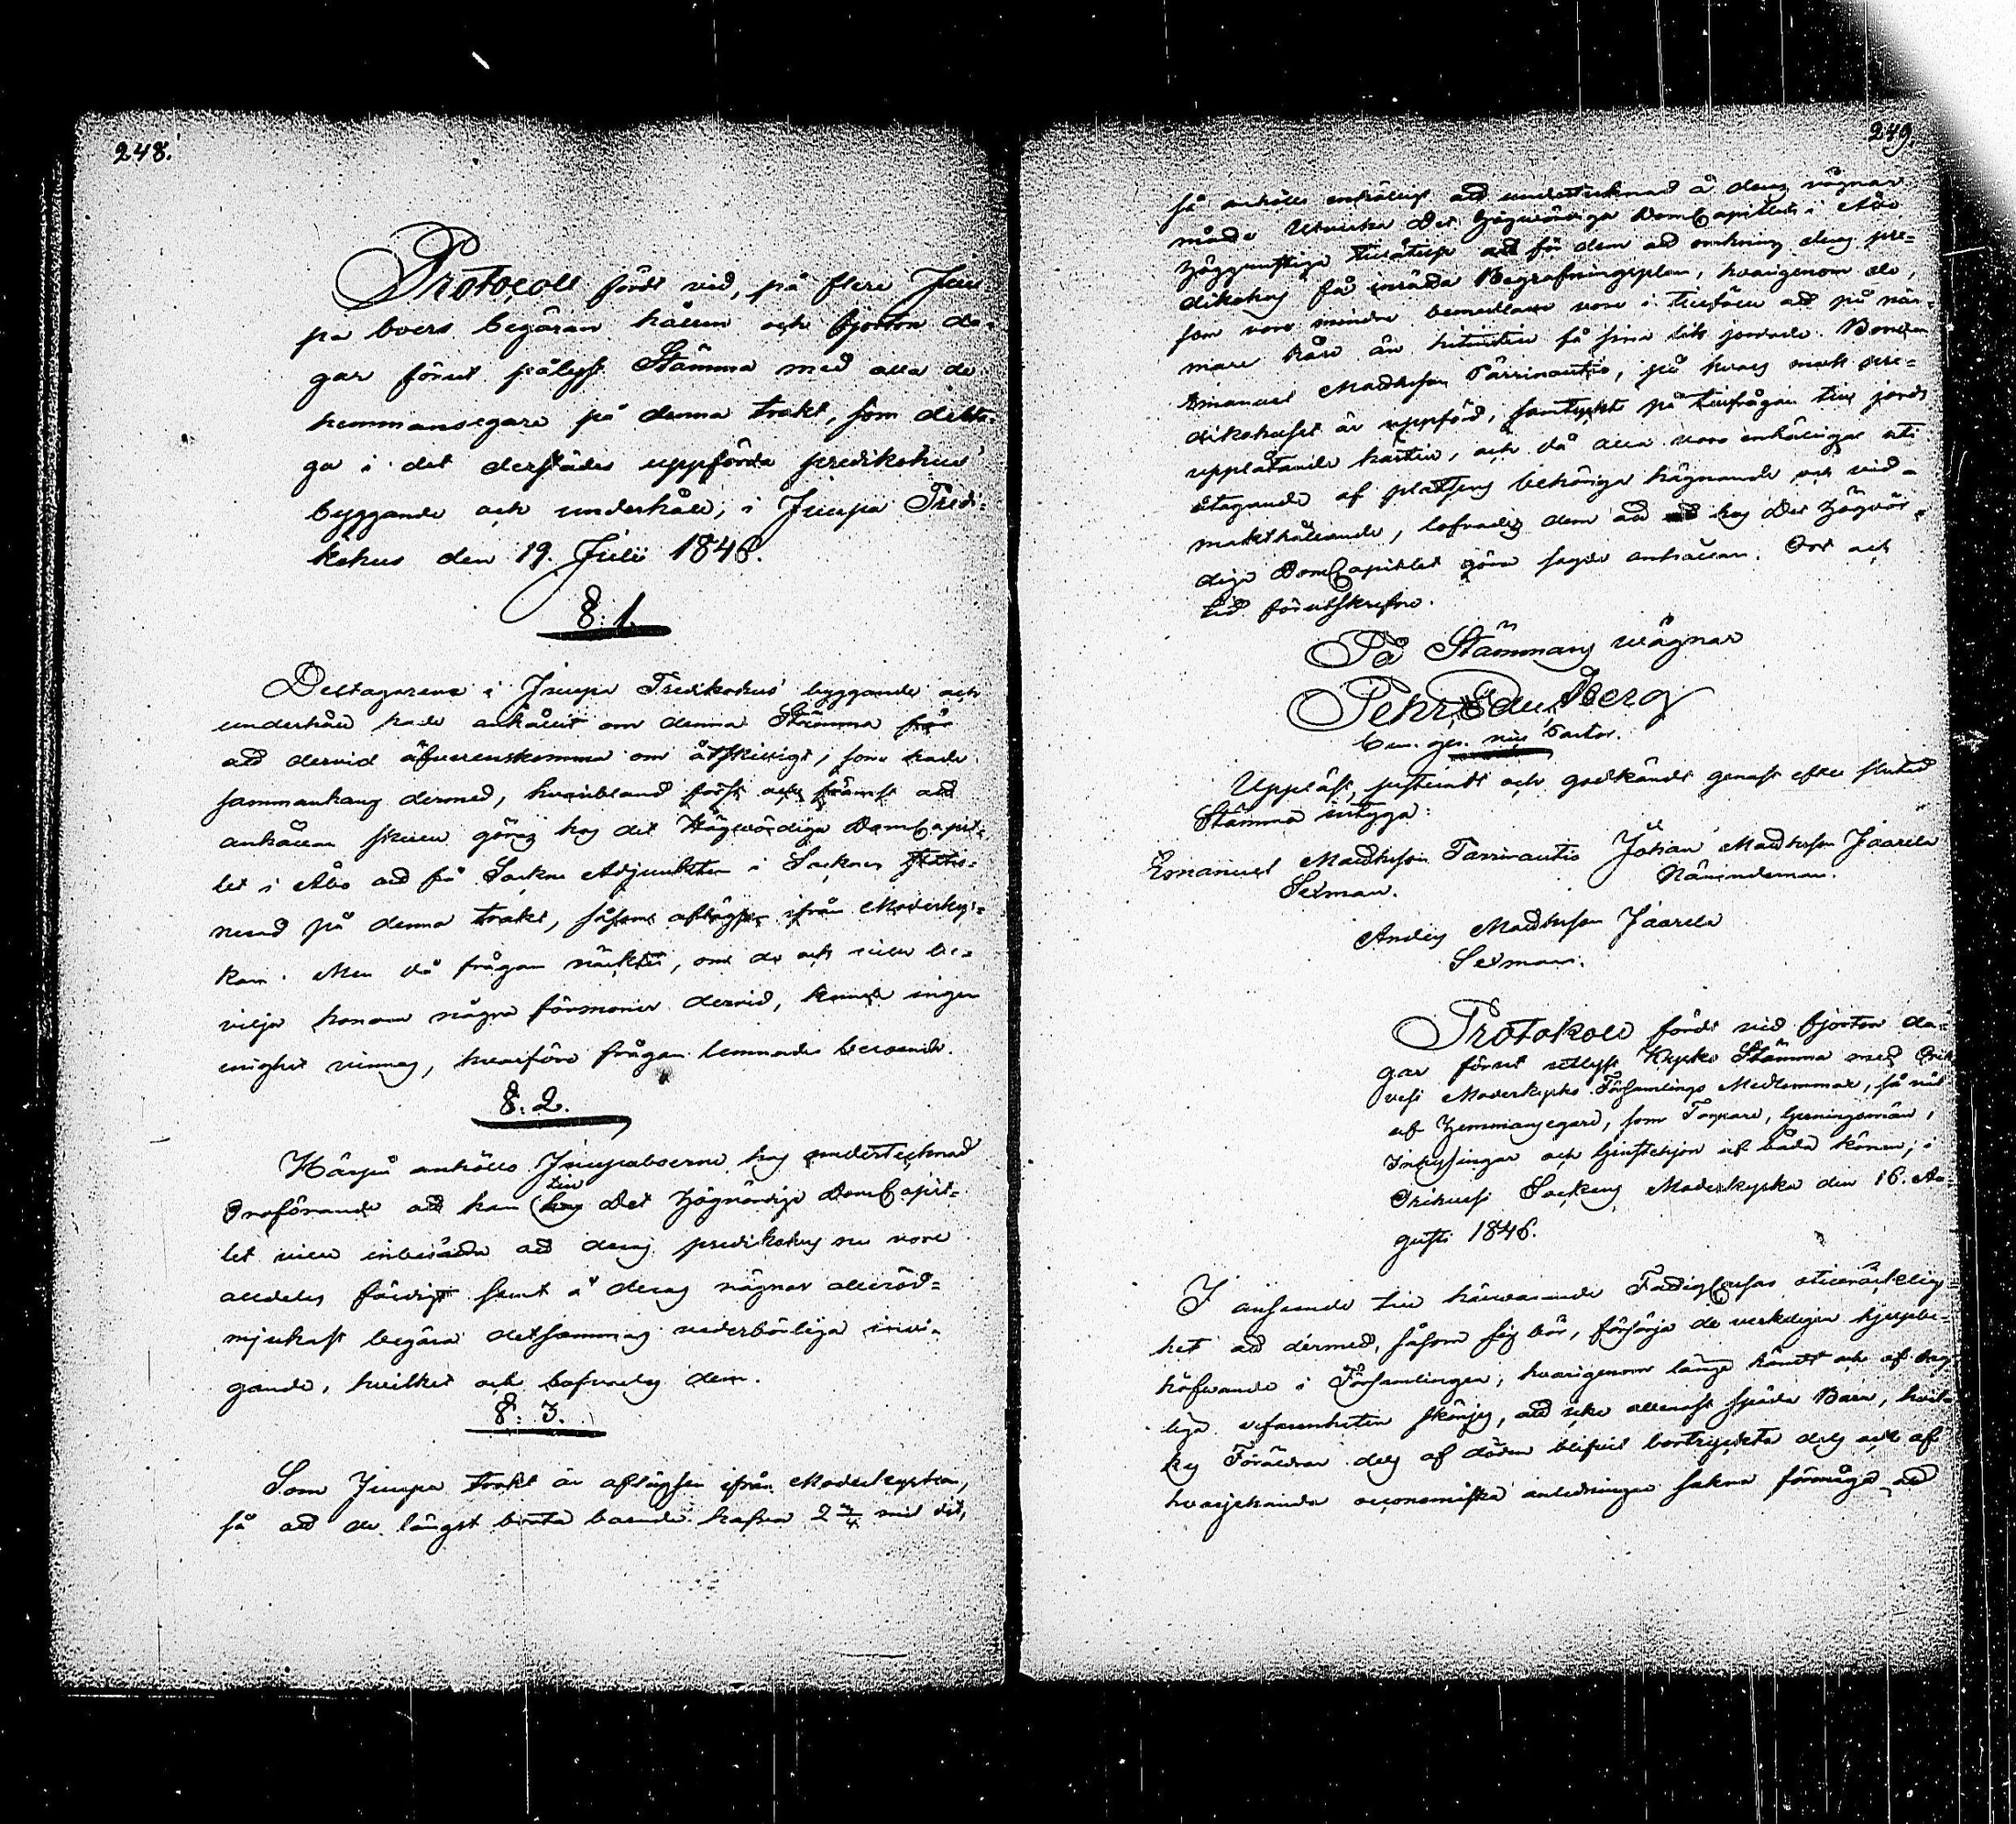 248.
Protocoll fördt vid, på flere Juu-
pa boers begäran hållen och fjorton da-
gar förut pålyst Stämma med alla de
hemmansegare på denna trakt, som delta-
ga i det derstädes uppförda predikohus'
byggande och underhåll; i Juupa Predi-
kohus den 19. Julii 1846.
§: 1.
Deltagarena i Juupa Predikohus' byggande och
underhåll hade anhållit om denna Stämma för
att dervid öfverenskomma om åtskilligt, som hade
sammanhang dermed, hvaribland först och främst att
anhållan skulle göras hos det Högvördiga DomCapit-
let i Åbo att få Sockne Adjunkten i Socknen
på denna trakt, såsom aflägsen ifrån Moderkyr-
kan. Men då frågan väcktes, om de ock ville be-
vilja honom några förmoner dervid, kunde ingen
enighet vinnas, hvarföre frågan lemnades beroende.
§: 2.
Härpå anhöllo Juupaboerne hos undertecknad
Ordförande att han till Det Högvördige DomCapit-
let ville inberätta att deras predikohus nu vore
alldeles färdigt samt å deras vägnar alleröd-
mjukast begära detsammas vederbörliga invi-
gande, hvilket ock lofvades dem.
§: 3.
Som Juupa trakt är aflägsen ifrån Moderkyrkan,
så att de längst borta boende hafva 2 3/4 mil dit,
249.
så anhölls enhälligt att undertecknad å deras vägnar
måtte utverka Det Högvördiga DomCapitlets i Åbo
Höggunstiga tillåtelse att för dem att omkring deras pre-
dikohus få inrätta Begrafningsplan, hvarigenom de,
som voro mindre bemedlade vore i tillfälle att på när-
mare håll än hittills få sina lik jordade. Bonden
Emanuel Mattsson Tarrinautio, på hvars mark pre-
dikohuset är uppförd, samtyckte på tillfrågan till jords
upplåtande härtill, och då alla voro enhälliga uti
åtagande af platsens behöriga hägnande och vid-
makthållande, lofvades dem att hos Det Högvör-
diga DomCapitlet göra sagde anhållan. Ort och
tid förutskrefne.
På Stämmans vägnar
Pehr Edu. Berg
Pastor.
Uppläst, justeradt och godkändt genast efter slutad
Stämma intyga:
Emanuel Mattsson Tarrinautio Johan Mattsson Jaarela
Sexman. Nämndeman.
Anders Mattsson Jaarela
Sexman.
Protokoll fördt vid fjorton da-
gar förut utlyst Kyrko Stämma med Ori-
vesi Moderkyrko Församlings Medlemmar, så väl
af Hemmansegare, som Torpare, Gerningsmän,
Inhysingar och tjenstehjon af båda könen; i
Orihvesi Sockens Moderkyrka den 16. Au-
gusti 1846.
I anseende till härvarande FattigCassas otillräcklig-
het att dermed, såsom sig bör, försörja de verkligen hjelpbe-
höfvande i Församlingen; hvarigenom länge kändt och af dag-
liga erfarenheten skönjes, att icke allenast späda Barn, hvil-
kas Föräldrar dels af döden blifvit bortryckta dels ock af
hvarjehanda oeconomiska anledningar sakna förmåga att